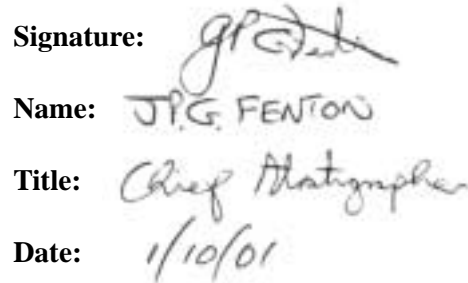 Signature: JPG Fenton
Name: J.P.G. FENTON
Title: Chief Stratigrapher
Date: 1/10/01